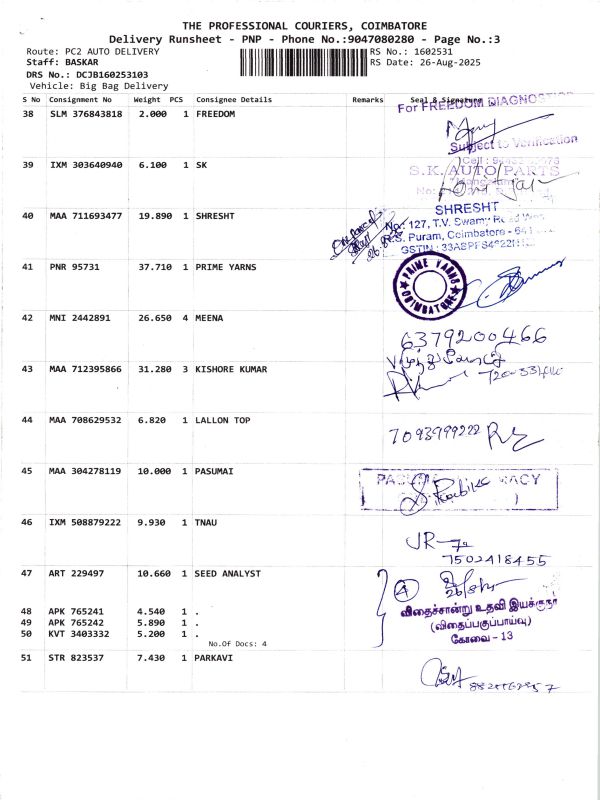 THE PROFESSIONAL COURIERS, COIMBATORE
Delivery Runsheet - PNP - Phone No.:9047080280 - Page No.:3
Route: PC2 AUTO DELIVERY RS No.: 1602531
Staff: BASKAR RS Date: 26-Aug-2025
DRS No.: DCJB160253103
Vehicle: Big Bag Delivery
S No Consignment No Weight PCS Consignee Details Remarks Seal & Signature
38 SLM 376843818 2.000 1 FREEDOM
For FREEDOM DIAGNOSTIC
Subject to Verification
39 IXM 303640940 6.100 1 SK
S.K. AUTO PARTS
40 MAA 711693477 19.890 1 SHRESHT
SHRESHT
No: 127, T.V. Swamy Road
R.S. Puram, Coimbatore - 641
41 PNR 95731 37.710 1 PRIME YARNS
PRIME YARNS
COIMBATORE
42 MNI 2442891 26.650 4 MEENA
6379200466
43 MAA 712395866 31.280 3 KISHORE KUMAR
44 MAA 708629532 6.820 1 LALLON TOP
7093999222
45 MAA 304278119 10.000 1 PASUMAI
46 IXM 508879222 9.930 1 TNAU
JR
7502418455
47 ART 229497 10.660 1 SEED ANALYST
4
26/8/25
48 APK 765241 4.540 1 .
விதைச்சான்று உதவி இயக்குநர்
49 APK 765242 5.890 1 .
(விதைப்பகுப்பாய்வு)
50 KVT 3403332 5.200 1 .
கோவை - 13
No.Of Docs: 4
51 STR 823537 7.430 1 PARKAVI